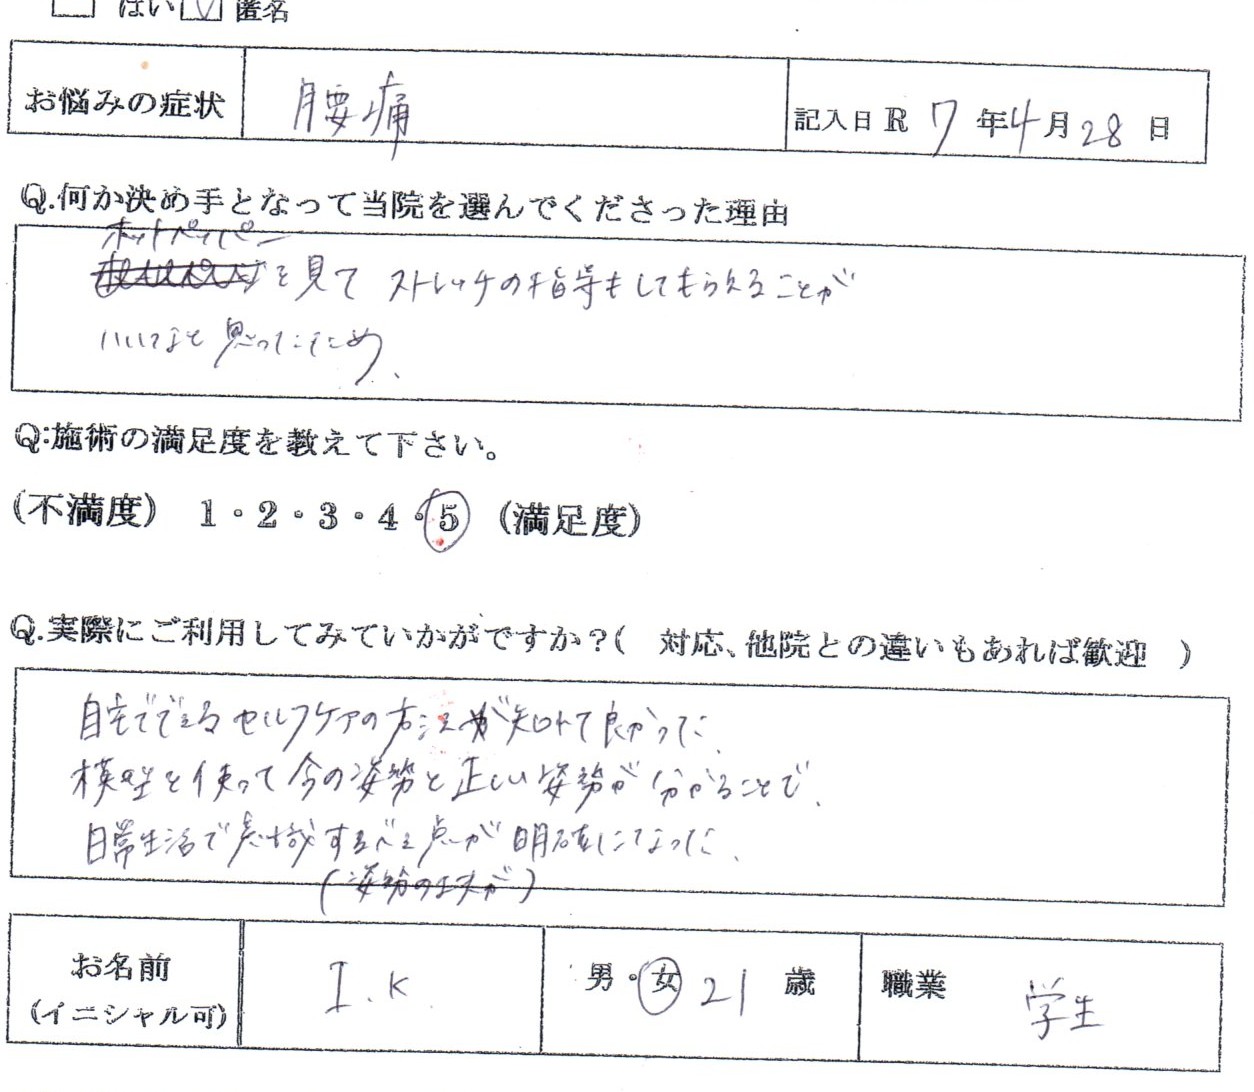 はい 匿名
お悩みの症状 腰痛 記入日 R 7 年 4 月 28 日
Q.何か決め手となって当院を選んでくださった理由
ホットペッパー
を見て ストレッチの指導もしてもらえることが
いいなと思ったため、
Q:施術の満足度を教えて下さい。
(不満度) 1・2・3・4・5 (満足度)
Q.実際にご利用してみていかがですか?( 対応、他院との違いもあれば歓迎 )
自宅でできるセルフケアの方法が知れて良かった、
模型を使って今の姿勢と正しい姿勢が分かることで、
日常生活で意識するべき点が明確になった、
(姿勢のエ夫が)
お名前 I.K 男・女 21 歳 職業 学生
(イニシャル可)